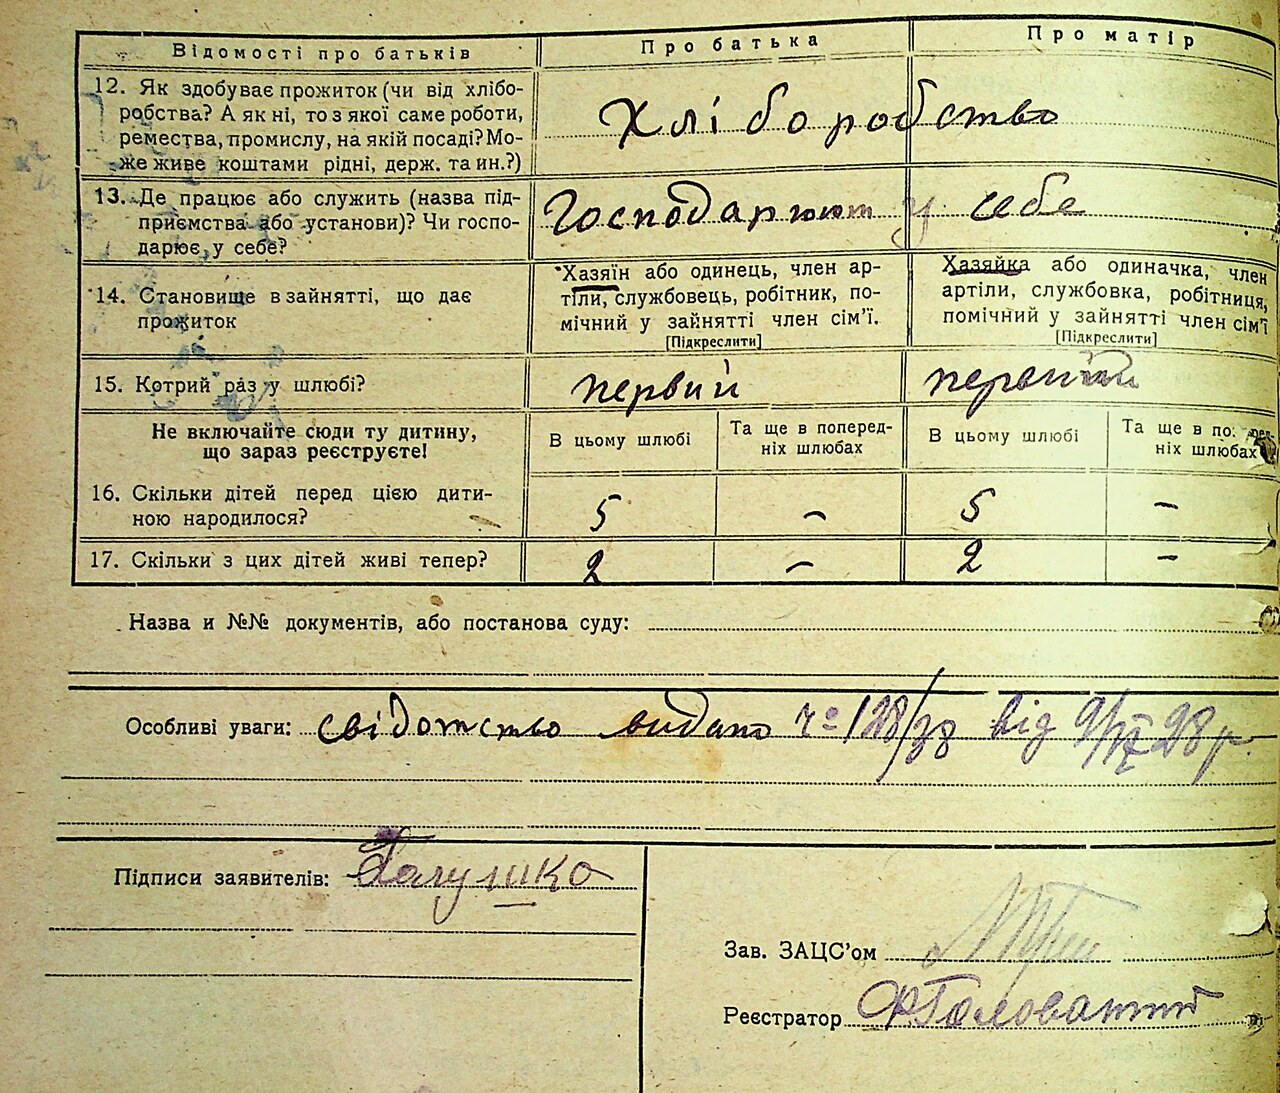 Відомості про батьків Про батька Про матір
12. Як здобуває прожиток (чи від хлібо-
робства? А як ні, то з якої саме роботи,
ремества, промислу, на якій посаді? Мо-
же живе коштами рідні, держ. та ин.?)
Хліборобство
13. Де працює або служить (назва під-
приємства або установи)? Чи госпо-
дарює, у себе?
Господарюют у себе
14. Становище в зайнятті, що дає
прожиток
Хазяїн або одинець, член ар-
тіли, службовець, робітник, по-
мічний у зайнятті член сім'ї.
[Підкреслити]
Хазяйка або одиначка, член
артіли, службовка, робітниця,
помічний у зайнятті член сім'ї
[Підкреслити]
15. Котрий раз у шлюбі? первий
Не включайте сюди ту дитину,
що зараз реєструєте!
В цьому шлюбі
Та ще в поперед-
ніх шлюбах
В цьому шлюбі
Та ще в по. ред-
ніх шлюбах
16. Скільки дітей перед цією дити-
ною народилося?
5 – 5 –
17. Скільки з цих дітей живі тепер? 2 – 2 –
Назва и №№ документів, або постанова суду:
Особливі уваги: свідотство видано 128/38 від 28 р.
Підписи заявителів: Галушко
Зав. ЗАЦС'ом
Реєстратор Ф. Головатий